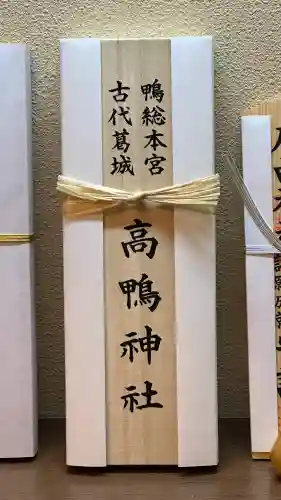 鴨総本宮
古代葛城
高鴨神社